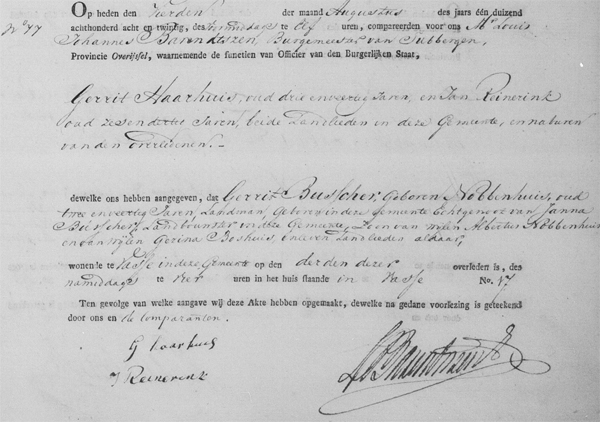 Op heden den Vierden der maand Augustus des jaars één duizend
No 77 achthonderd acht en twintig, des voormiddags te elf uren, compareerden voor ons Mr Louis
Johannes Barendtszen, Burgemeester van Tubbergen,
Provincie Overijssel, waarnemende de functien van Officier van den Burgerlijken Staat,
Gerrit Haarhuis, oud drie en veertig Jaren, en Jan Reinerink
oud zes en dertig Jaren, beide Landlieden in deze Gemeente, en naburen
van den overledenen.
dewelke ons hebben aangegeven, dat Gerrit Busscher, Geboren Nobbenhuis, oud
twee en veertig Jaren, Landman, Geboren in deze Gemeente Echtgenoot van Janna
Busscher, Landbouwster in deze Gemeente, Zoon van wijlen Albertus Nobbenhuis
en van wijlen Gezina Boshuis, in leven Landlieden aldaar,
wonende te Vasse in deze Gemeente op den derden dezer overleden is, des
namiddags te vier uren in het huis staande in Vasse No. 17
Ten gevolge van welke aangave wij deze Akte hebben opgemaakt, dewelke na gedane voorlezing is geteekend
door ons en de Comparanten.
G Haarhuis
J Reinerink